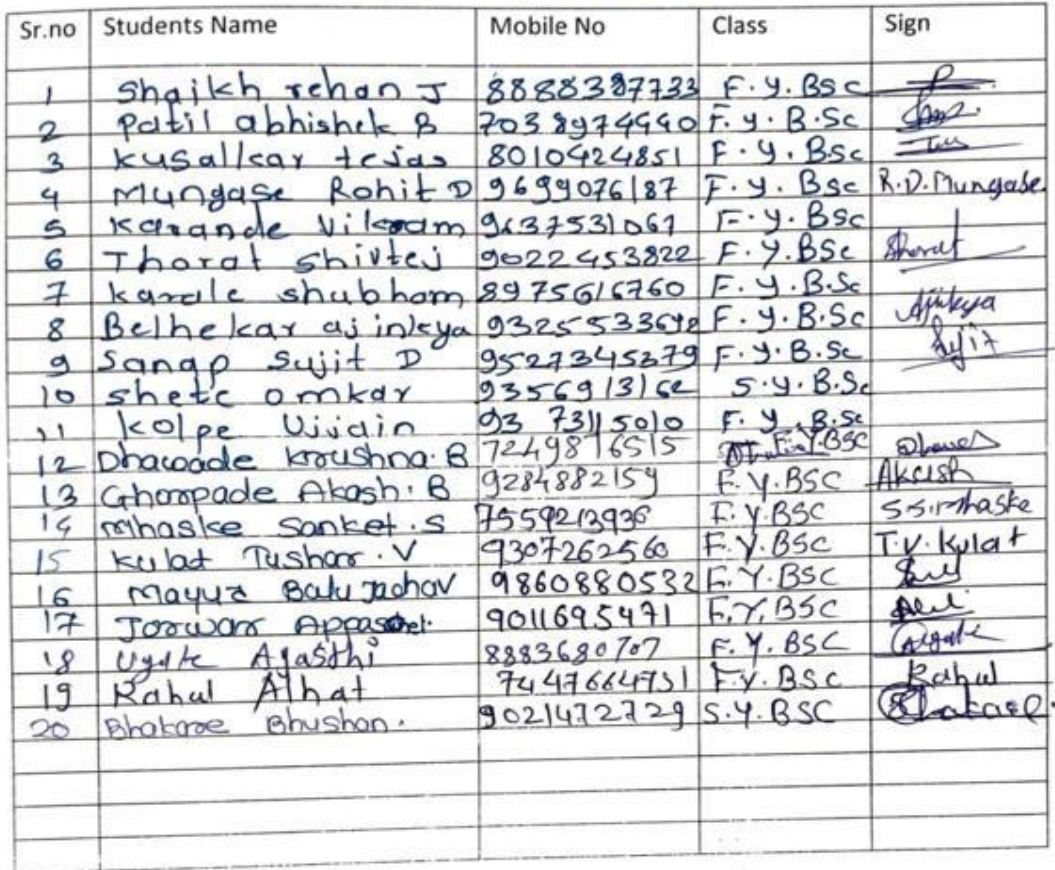 Sr.no Students Name Mobile No Class Sign
1 Shaikh rehan J 8888387733 F.Y.BSc
2 Patil abhishek B 7038974440 F.y.B.Sc
3 Kusalkar tejas 8010424851 F.y.BSc
4 Mungase Rohit D 9699076187 F.y.BSc R.D.Mungase
5 Karande Vikram 9637531061 F.y.BSc
6 Thorat Shivtej 9022453822 F.y.BSc Thorat
7 Karale shubham 8975616760 F.y.B.Sc
8 Belhekar ajinkya F.y.B.Sc Ajinkya
9 Sanap Sujit D 9527345279 F.y.B.Sc Sujit
10 shete omkar S.y.B.Sc
11 kolpe 93 73115010 F.y.B.Sc
12 Dhawade Krushna.B 7249816515 F.Y.BSC
13 Ghorpade Akash.B 9284882159 F.Y.BSC Akash
14 Mhaske Sanket.S 7559213936 F.Y.BSC S.S.Mhaske
15 Kulat Tushar.V 9307262560 F.Y.BSC T.V.Kulat
16 Mayur Balu Jadhav 9860880532 F.Y.BSC
17 Jorwar 9011695471 F.Y.BSC
18 Ugale Agasthi 8883680707 F.Y.BSC
19 Rahul Alhat 7447664751 F.Y.BSC Rahul
20 Bhakare Bhushan. 9021472729 S.Y.BSC Bhakare.